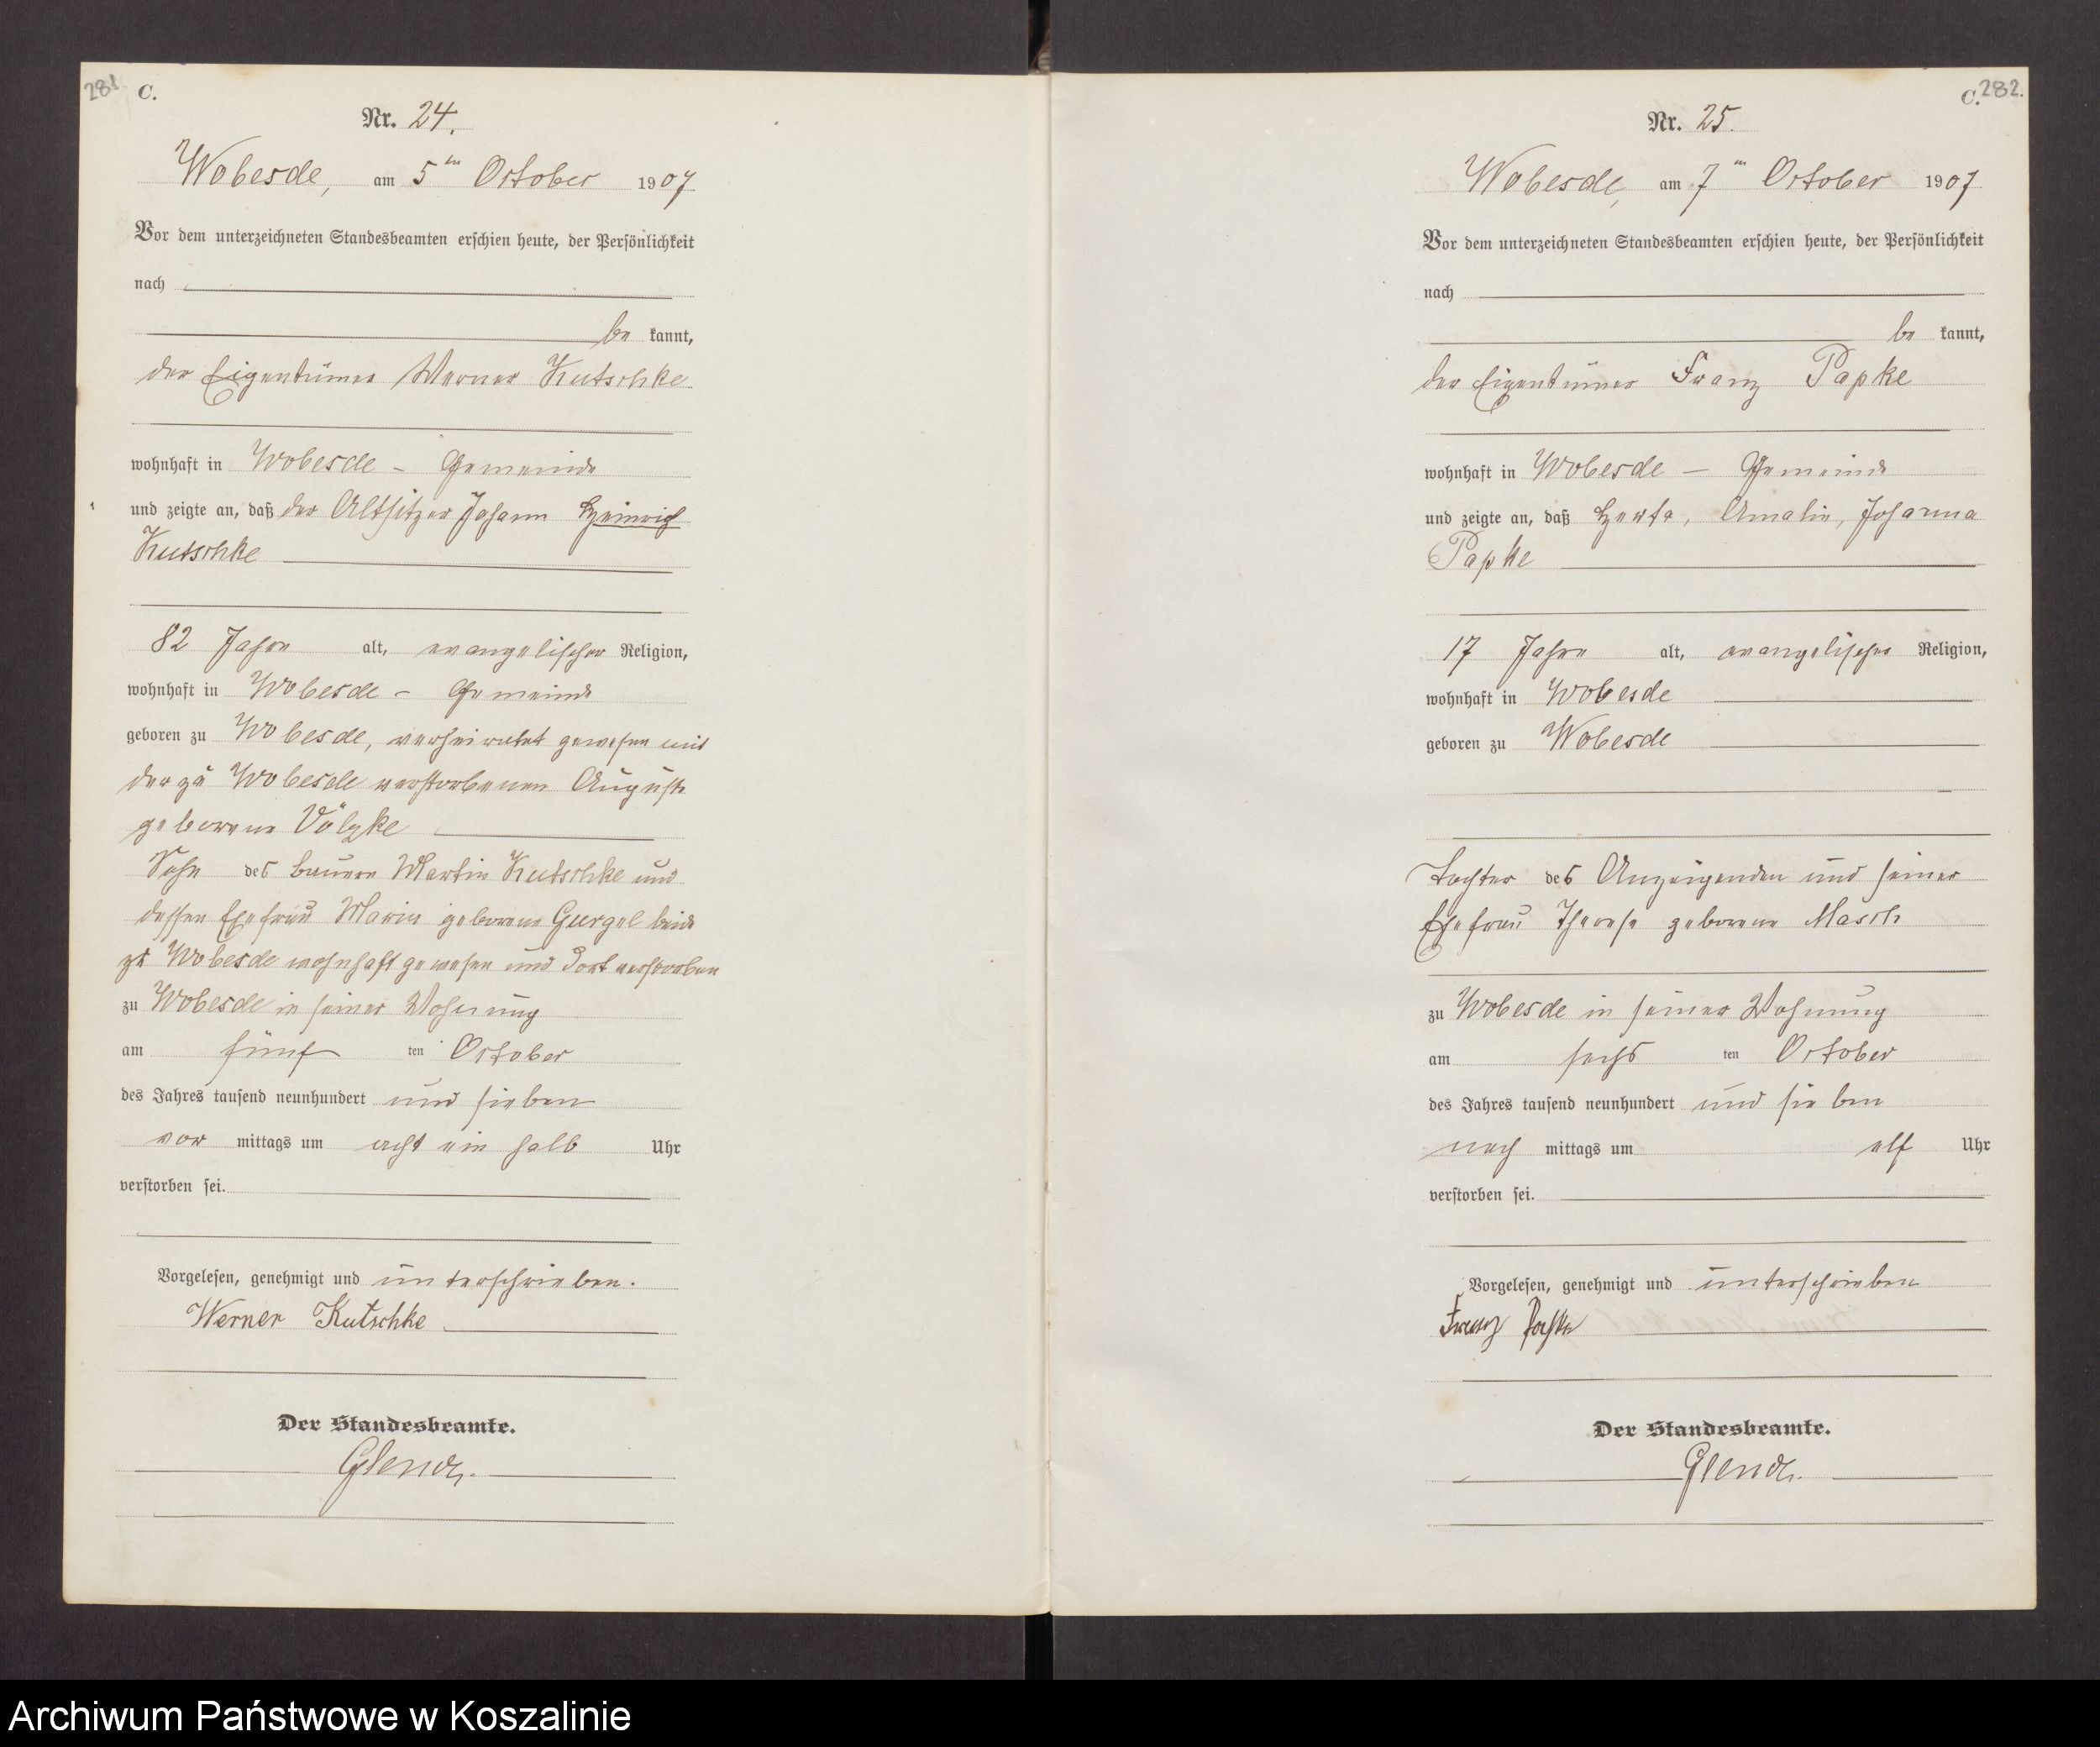 281.
C.
Nr. 24.
Wobesde, am 5ten October 1907
Vor dem unterzeichneten Standesbeamten erschien heute, der Persönlichkeit
nach
be kannt,
der Eigentümer Werner Kutschke
wohnhaft in Wobesde - Gemeinde
und zeigte an, daß der Altsitzer Johann Heinrich
Kutschke
82 Jahre alt, evangelischer Religion,
wohnhaft in Wobesde - Gemeinde
geboren zu Wobesde, verheiratet gewesen mit
der zu Wobesde verstorbenen Auguste
geborene Völzke
Sohn des Bauern Martin Kutschke und
dessen Ehefrau Marie geborene Gurgel beide
zu Wobesde wohnhaft gewesen und dort verstorben
zu Wobesde in seiner Wohnung
am fünf ten October
des Jahres tausend neunhundert und sieben
vor mittags um acht ein halb Uhr
verstorben sei.
Vorgelesen, genehmigt und unterschrieben.
Werner Kutschke
Der Standesbeamte.
C.
282.
Nr. 25.
Wobesde, am 7ten October 1907
Vor dem unterzeichneten Standesbeamten erschien heute, der Persönlichkeit
nach
be kannt,
der Eigentümer Franz Papke
wohnhaft in Wobesde — Gemeinde
und zeigte an, daß Herta, Amalie, Johanna
Papke
17 Jahre alt, evangelischer Religion,
wohnhaft in Wobesde
geboren zu Wobesde
Tochter des Anzeigenden und seiner
Ehefrau Therese geborene Masch
zu Wobesde in seiner Wohnung
am sechs ten October
des Jahres tausend neunhundert und sieben
nach mittags um elf Uhr
verstorben sei.
Vorgelesen, genehmigt und unterschrieben
Franz Papke
Der Standesbeamte.
Archiwum Państwowe w Koszalinie